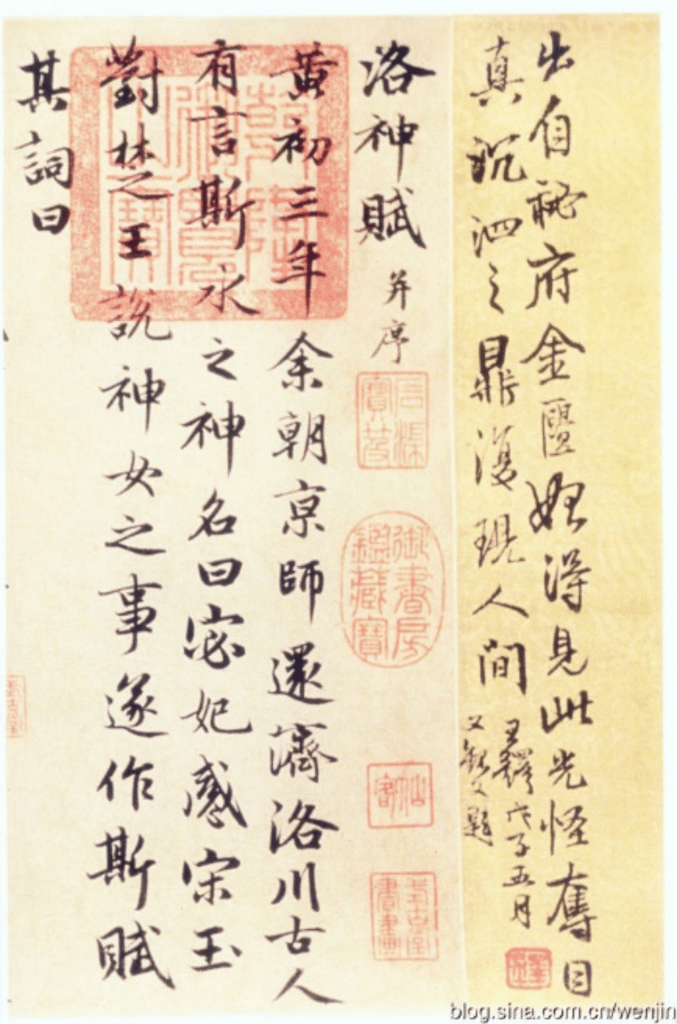 出自秘府金匱始得見此光怪奪目
真沉泗之鼎復現人間
王鐸戊子五月
又敬題
洛神賦 并序
黃初三年余朝京師還濟洛川古人
有言斯水之神名曰宓妃感宋玉
對楚王說神女之事遂作斯賦
其詞曰
御書房鑑藏寶
blog.sina.com.cn/wenjin